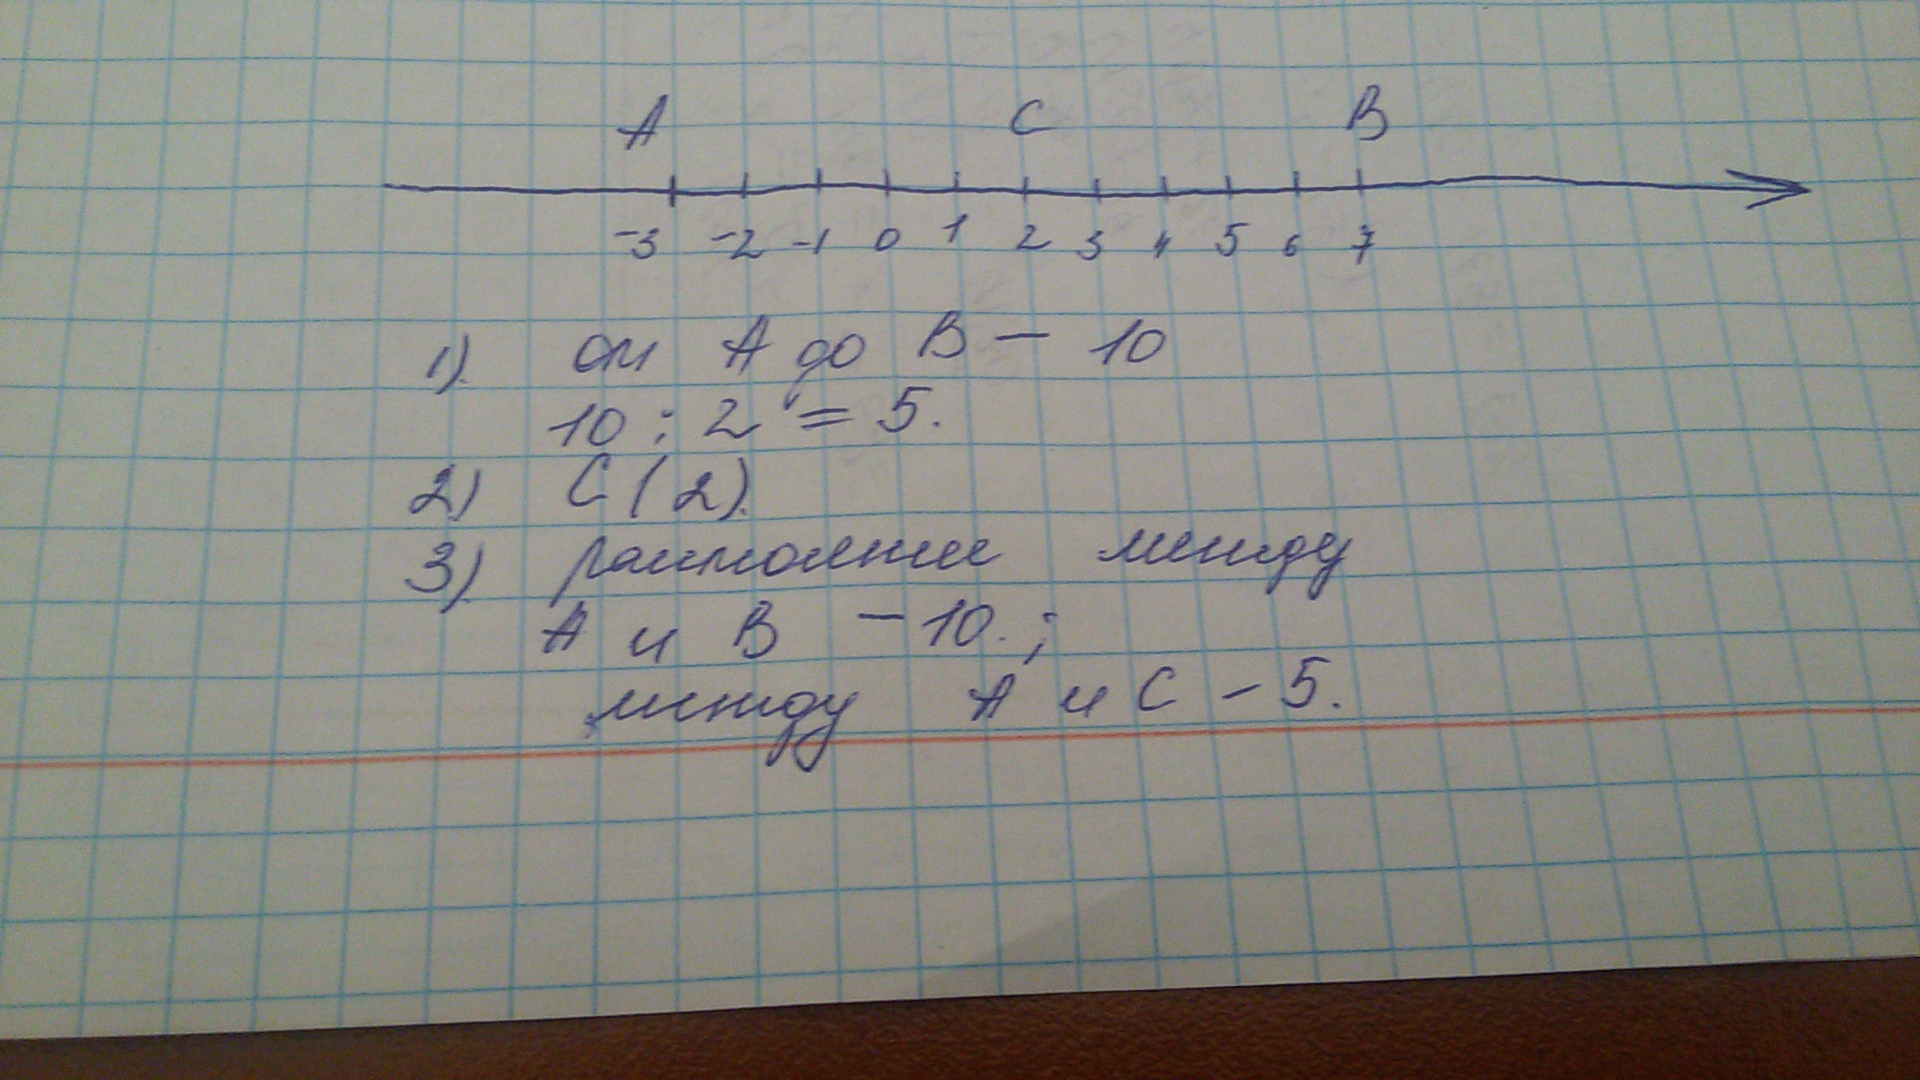 А С В
-3 -2 -1 0 1 2 3 4 5 6 7
1). от А до В - 10
10 : 2 = 5.
2) С (2).
3) расстояние между
А и В - 10. ;
между А и С - 5.